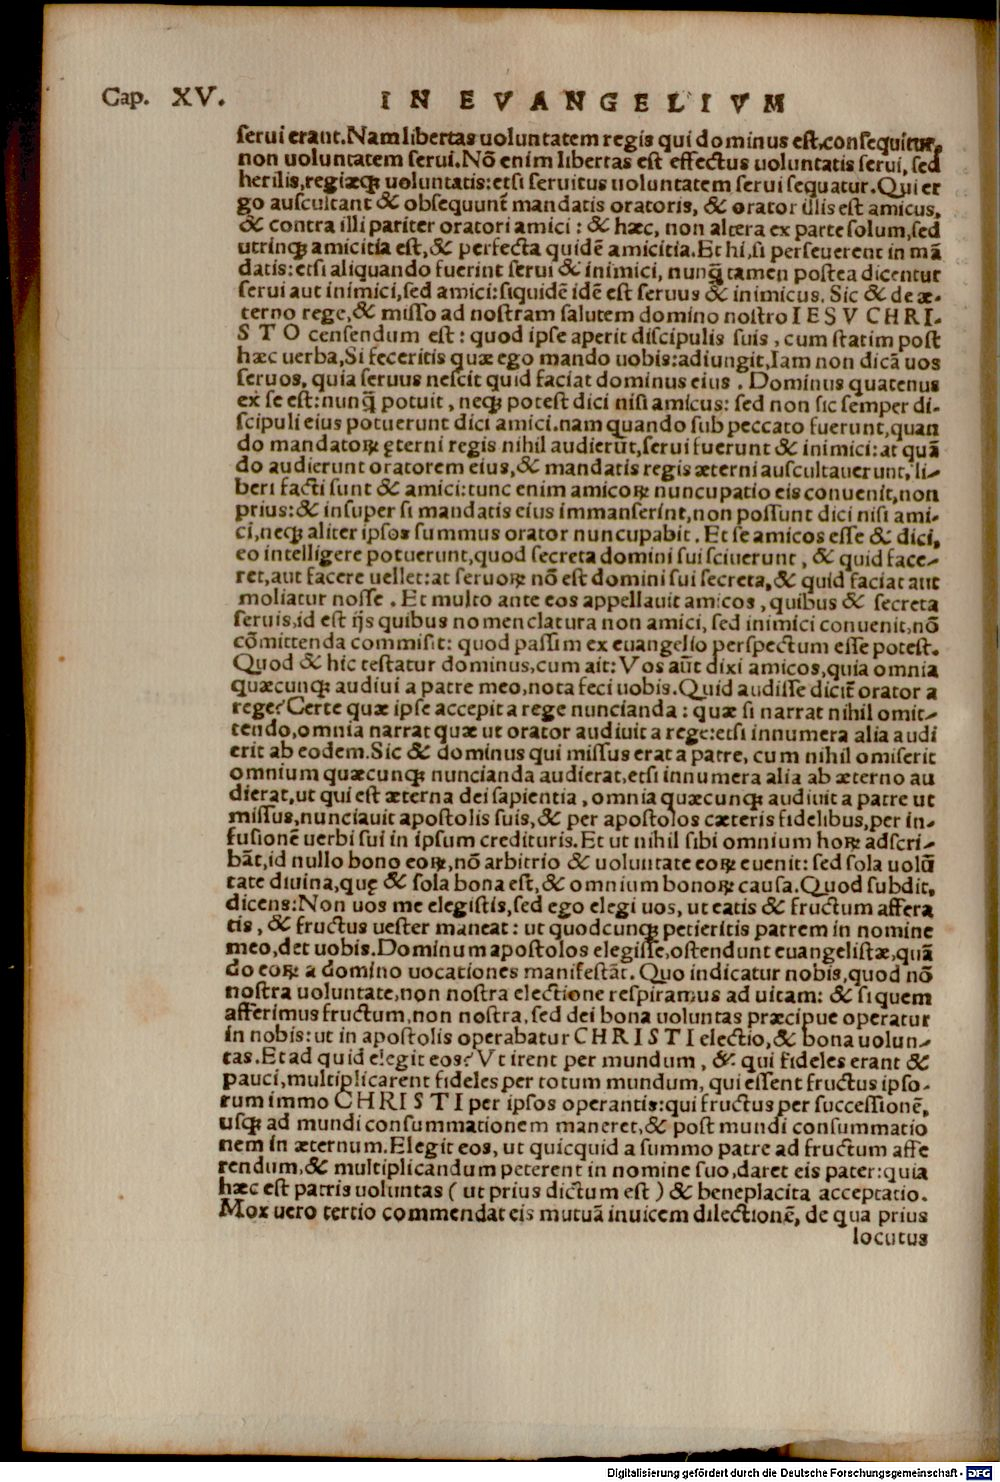 Cap. XV. IN EVANGELIVM
serui erant. Nam libertas uoluntatem regis qui dominus est, consequitur,
non uoluntatem serui. Nō enim libertas est effectus uoluntatis serui, sed
herilis, regiæqꝫ uoluntatis: etsi seruitus uoluntatem serui sequatur. Qui er
go auscultant & obsequunt᷑ mandatis oratoris, & orator illis est amicus,
& contra illi pariter oratori amici: & hæc, non altera ex parte solum, sed
utrinqꝫ amicitia est, & perfecta quidē amicitia. Et hi, si perseuerent in mā
datis: etsi aliquando fuerint serui & inimici, nunq̄ tamen postea dicentur
serui aut inimici, sed amici: siquidē idē est seruus & inimicus. Sic & de æ-
terno rege, & misso ad nostram salutem domino nostro IESV CHRI-
STO censendum est: quod ipse aperit discipulis suis, cum statim post
hæc uerba, Si feceritis quæ ego mando uobis: adiungit, Iam non dicā uos
seruos, quia seruus nescit quid faciat dominus eius. Dominus quatenus
ex se est: nunq̄ potuit, neqꝫ potest dici nisi amicus: sed non sic semper di-
scipuli eius potuerunt dici amici. nam quando sub peccato fuerunt, quan
do mandatoꝝ ęterni regis nihil audierūt, serui fuerunt & inimici: at quā
do audierunt oratorem eius, & mandatis regis æterni auscultauerunt, li-
beri facti sunt & amici: tunc enim amicoꝝ nuncupatio eis conuenit, non
prius: & insuper si mandatis eius immanserint, non possunt dici nisi ami-
ci, neqꝫ aliter ipsos summus orator nuncupabit. Et se amicos esse & dici,
eo intelligere potuerunt, quod secreta domini sui sciuerunt, & quid face-
ret, aut facere uellet: at seruoꝝ nō est domini sui secreta, & quid faciat aut
moliatur nosse. Et multo ante eos appellauit amicos, quibus & secreta
seruis, id est ijs quibus nomenclatura non amici, sed inimici conuenit, nō
cōmittenda commisit: quod passim ex euangelio perspectum esse potest.
Quod & hic testatur dominus, cum ait: Vos aūt dixi amicos, quia omnia
quæcunqꝫ audiui a patre meo, nota feci uobis. Quid audisse dicit᷑ orator a
rege? Certe quæ ipse accepit a rege nuncianda: quæ si narrat nihil omit-
tendo, omnia narrat quæ ut orator audiuit a rege: etsi innumera alia audi
erit ab eodem. Sic & dominus qui missus erat a patre, cum nihil omiserit
omnium quæcunqꝫ nuncianda audierat, etsi innumera alia ab æterno au
dierat, ut qui est æterna dei sapientia, omnia quæcunqꝫ audiuit a patre ut
missus, nunciauit apostolis suis, & per apostolos cæteris fidelibus, per in-
fusionē uerbi sui in ipsum credituris. Et ut nihil sibi omnium hoꝝ adscri-
bāt, id nullo bono eoꝝ, nō arbitrio & uoluntate eoꝝ euenit: sed sola uolū
tate diuina, quę & sola bona est, & omnium bonoꝝ causa. Quod subdit,
dicens: Non uos me elegistis, sed ego elegi uos, ut eatis & fructum affera
tis, & fructus uester maneat: ut quodcunqꝫ petieritis patrem in nomine
meo, det uobis. Dominum apostolos elegisse, ostendunt euangelistæ, quā
do eoꝝ a domino uocationes manifestāt. Quo indicatur nobis, quod nō
nostra uoluntate, non nostra electione respiramus ad uitam: & si quem
afferimus fructum, non nostra, sed dei bona uoluntas præcipue operatur
in nobis: ut in apostolis operabatur CHRISTI electio, & bona uolun-
tas. Et ad quid elegit eos? Vt irent per mundum, & qui fideles erant &
pauci, multiplicarent fideles per totum mundum, qui essent fructus ipso-
rum immo CHRISTI per ipsos operantis: qui fructus per successionē,
usqꝫ ad mundi consummationem maneret, & post mundi consummatio
nem in æternum. Elegit eos, ut quicquid a summo patre ad fructum affe
rendum, & multiplicandum peterent in nomine suo, daret eis pater: quia
hæc est patris uoluntas (ut prius dictum est) & beneplacita acceptatio.
Mox uero tertio commendat eis mutuā inuicem dilectionē, de qua prius
locutus
Digitalisierung gefördert durch die Deutsche Forschungsgemeinschaft - DFG